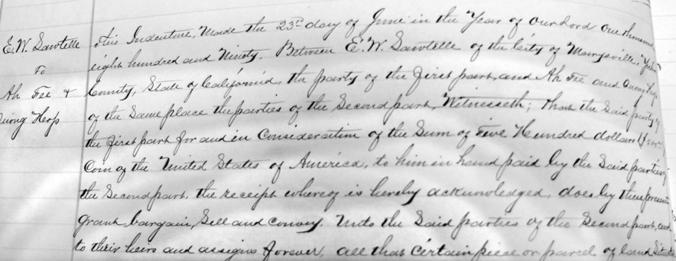 E. W. Sawtelle
To
Ah Fee &
Quong Hop
This Indenture, Made the 23rd day of June in the Year of Our Lord One thousand
eight hundred and Ninety. Between E. W. Sawtelle of the City of Marysville, Yuba
County, State of California, the party of the First part, and Ah Fee and Quong Hop
of the Same place the parties of the Second part, Witnesseth; That the Said party of
the First part for and in Consideration of the Sum of Five Hundred dollars
Coin of the United States of America, to him in hand paid by the Said parties
the Second part, the receipt whereof is hereby acknowledged, does by these presents
grant, bargain, Sell and Convey, Unto the Said parties of the Second part, and
to their heirs and assigns forever, all that Certain piece or parcel of land